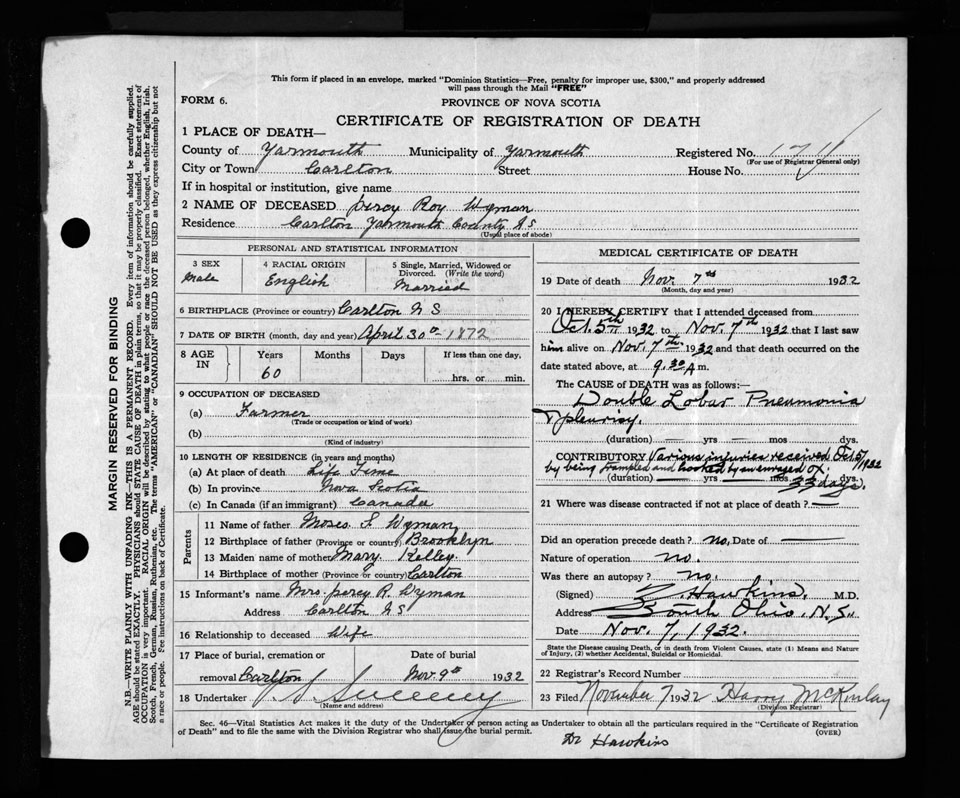 This form if placed in an envelope, marked "Dominion Statistics—Free, penalty for improper use, $300," and properly addressed
will pass through the Mail "FREE"
FORM 6.
PROVINCE OF NOVA SCOTIA
CERTIFICATE OF REGISTRATION OF DEATH
1 PLACE OF DEATH—
County of Yarmouth Municipality of Yarmouth Registered No.
(For use of Registrar General only)
City or Town Carlton Street House No.
If in hospital or institution, give name
2 NAME OF DECEASED Percy Roy Wyman
Residence Carlton Yarmouth County N S
(Usual place of abode)
PERSONAL AND STATISTICAL INFORMATION
3 SEX 4 RACIAL ORIGIN 5 Single, Married, Widowed or
Divorced. (Write the word)
Male English Married
6 BIRTHPLACE (Province or country) Carlton N S
7 DATE OF BIRTH (month, day and year) April 30th 1872
8 AGE IN Years Months Days If less than one day,
60 hrs. or min.
9 OCCUPATION OF DECEASED
(a) Farmer
(Trade or occupation or kind of work)
(b)
(Kind of industry)
10 LENGTH OF RESIDENCE (in years and months)
(a) At place of death Life Time
(b) In province Nova Scotia
(c) In Canada (if an immigrant) Canada
Parents
11 Name of father Moses F. Wyman
12 Birthplace of father (Province or country) Brooklyn
13 Maiden name of mother Mary Kelley.
14 Birthplace of mother (Province or country) Carlton
15 Informant's name Mrs. Percy R. Wyman
Address Carlton N S
16 Relationship to deceased Wife
17 Place of burial, cremation or Date of burial
removal Carlton Nov. 9th 1932
18 Undertaker Sweeney
(Name and address)
MEDICAL CERTIFICATE OF DEATH
19 Date of death Nov. 7th 1932
(Month, day and year)
20 I HEREBY CERTIFY that I attended deceased from
Oct. 5th 1932 to Nov. 7th 1932 that I last saw
him alive on Nov. 7th 1932 and that death occurred on
date stated above, at 9.30 A m.
The CAUSE OF DEATH was as follows:
Double Lobar Pneumonia
& pleurisy.
(duration) — yrs — mos dys.
CONTRIBUTORY Various injuries received Oct. 5/1932
by being trampled and hooked by an enraged ox.
(duration) — yrs — mos dys.
33 days.
21 Where was disease contracted if not at place of death? —
Did an operation precede death? no, Date of —
Nature of operation no.
Was there an autopsy? no.
(Signed) Hawkins. M.D.
Address South Ohio. N.S.
Date Nov. 7, 1932.
State the Disease causing Death, or in death from Violent Causes, state (1) Means and Nature
of Injury, (2) whether Accidental, Suicidal or Homicidal.
22 Registrar's Record Number
23 Filed November 7 1932 Harry McKinlay
(Division Registrar)
Sec. 46—Vital Statistics Act makes it the duty of the Undertaker or person acting as Undertaker to obtain all the particulars required in the "Certificate of Registration
of Death" and to file the same with the Division Registrar who shall issue the burial permit.
(OVER)
Dr Hawkins
MARGIN RESERVED FOR BINDING
N.B.—WRITE PLAINLY WITH UNFADING INK—THIS IS A PERMANENT RECORD. Every item of information should be carefully supplied.
AGE should be stated EXACTLY. PHYSICIANS should STATE CAUSE OF DEATH in plain terms, so that it may be properly classified. Exact statement of
OCCUPATION is very important. RACIAL ORIGIN will be described by stating to what people or race the deceased person belonged, whether English, Irish,
Scotch, French, German, Russian, Ruthenian, etc. The terms "AMERICAN" or "CANADIAN" SHOULD NOT BE USED as they express citizenship but not
a race or people. See instructions on back of Certificate.